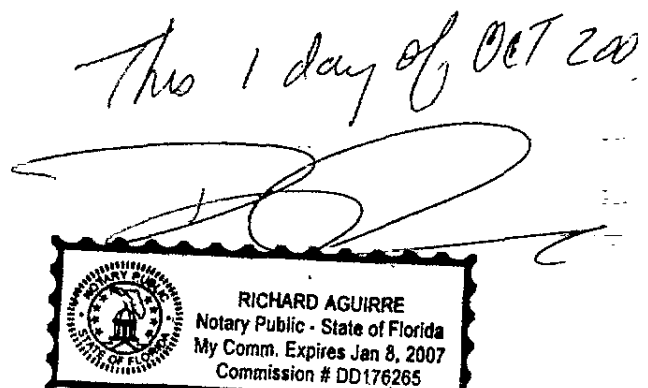 This 1 day of OCT 200
NOTARY PUBLIC
STATE OF FLORIDA
RICHARD AGUIRRE
Notary Public - State of Florida
My Comm. Expires Jan 8, 2007
Commission # DD176265